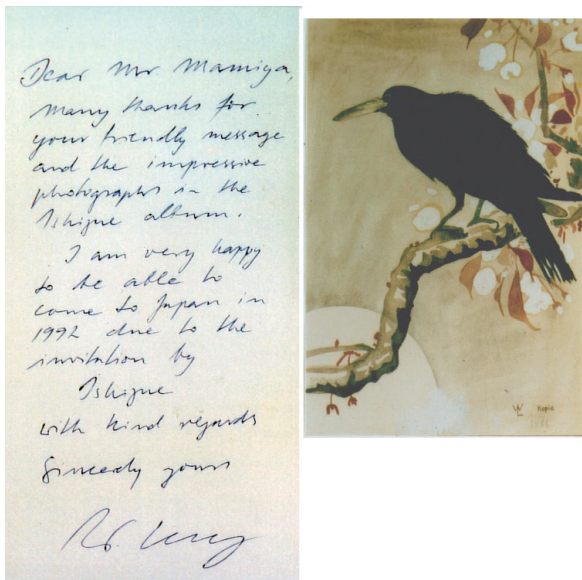 Dear Mr Mamiya,
many thanks for
your friendly message
and the impressive
photographs in the
Ishizue album.
I am very happy
to be able to
come to Japan in
1992 due to the
invitation by
Ishizue
with kind regards
Sincerely yours
WL Kopie